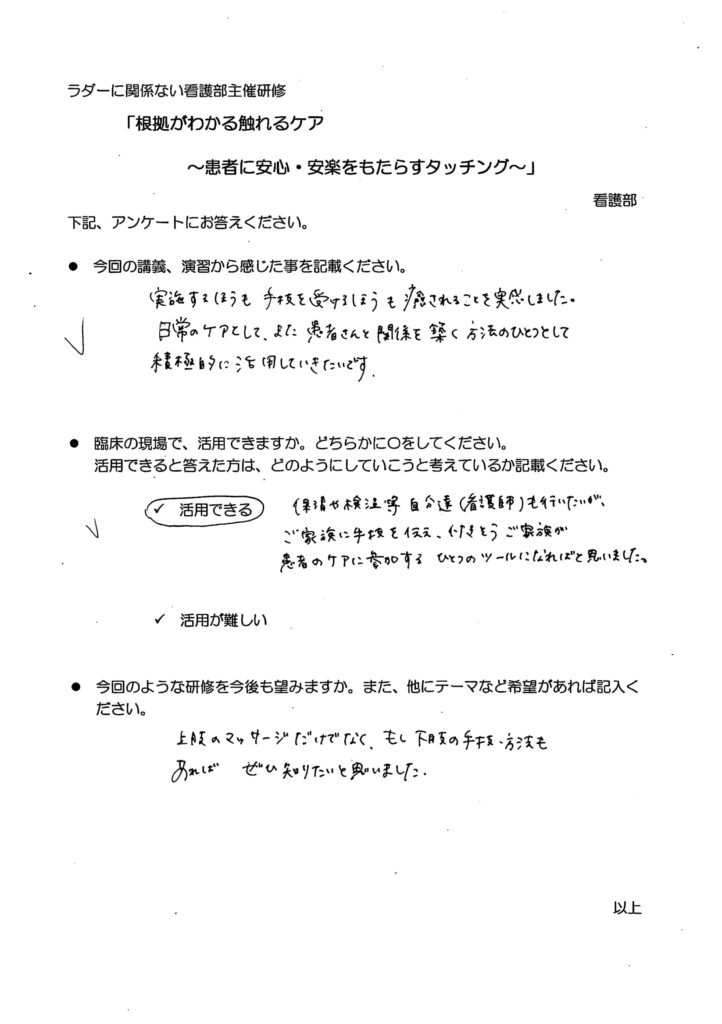 ラダーに関係ない看護部主催研修
「根拠がわかる触れるケア
～患者に安心・安楽をもたらすタッチング～」
看護部
下記、アンケートにお答えください。
● 今回の講義、演習から感じた事を記載ください。
実施するほうも 手技を受けるほうも 癒されることを実感しました。
日常のケアとして、また 患者さんと関係を築く方法のひとつとして
積極的に活用していきたいです.
● 臨床の現場で、活用できますか。どちらかに○をしてください。
活用できると答えた方は、どのようにしていこうと考えているか記載ください。
✓ 活用できる
保清や検温等 自分達(看護師)も行いたいが、
ご家族に手技を伝え、付きそう ご家族が
患者のケアに参加する ひとつのツールになればと思いました。
✓ 活用が難しい
● 今回のような研修を今後も望みますか。また、他にテーマなど希望があれば記入く
ださい。
上肢のマッサージだけでなく、もし下肢の手技・方法も
あれば ぜひ知りたいと思いました.
以上